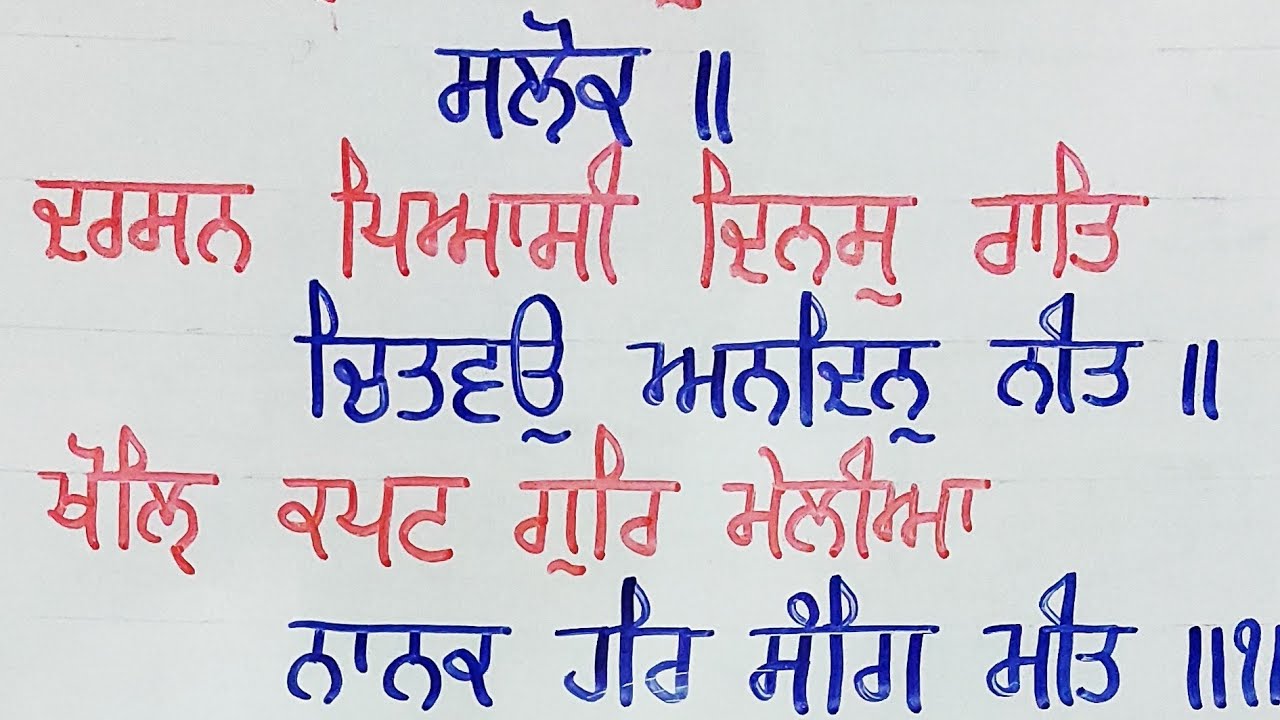 ਸਲੋਕ ॥
ਦਰਸਨ ਪਿਆਸੀ ਦਿਨਸੁ ਰਾਤਿ
ਚਿਤਵਉ ਅਨਦਿਨੁ ਨੀਤ ॥
ਖੋਲਿੑ ਕਪਟ ਗੁਰਿ ਮੇਲੀਆ
ਨਾਨਕ ਹਰਿ ਸੰਗਿ ਮੀਤ ॥੧॥